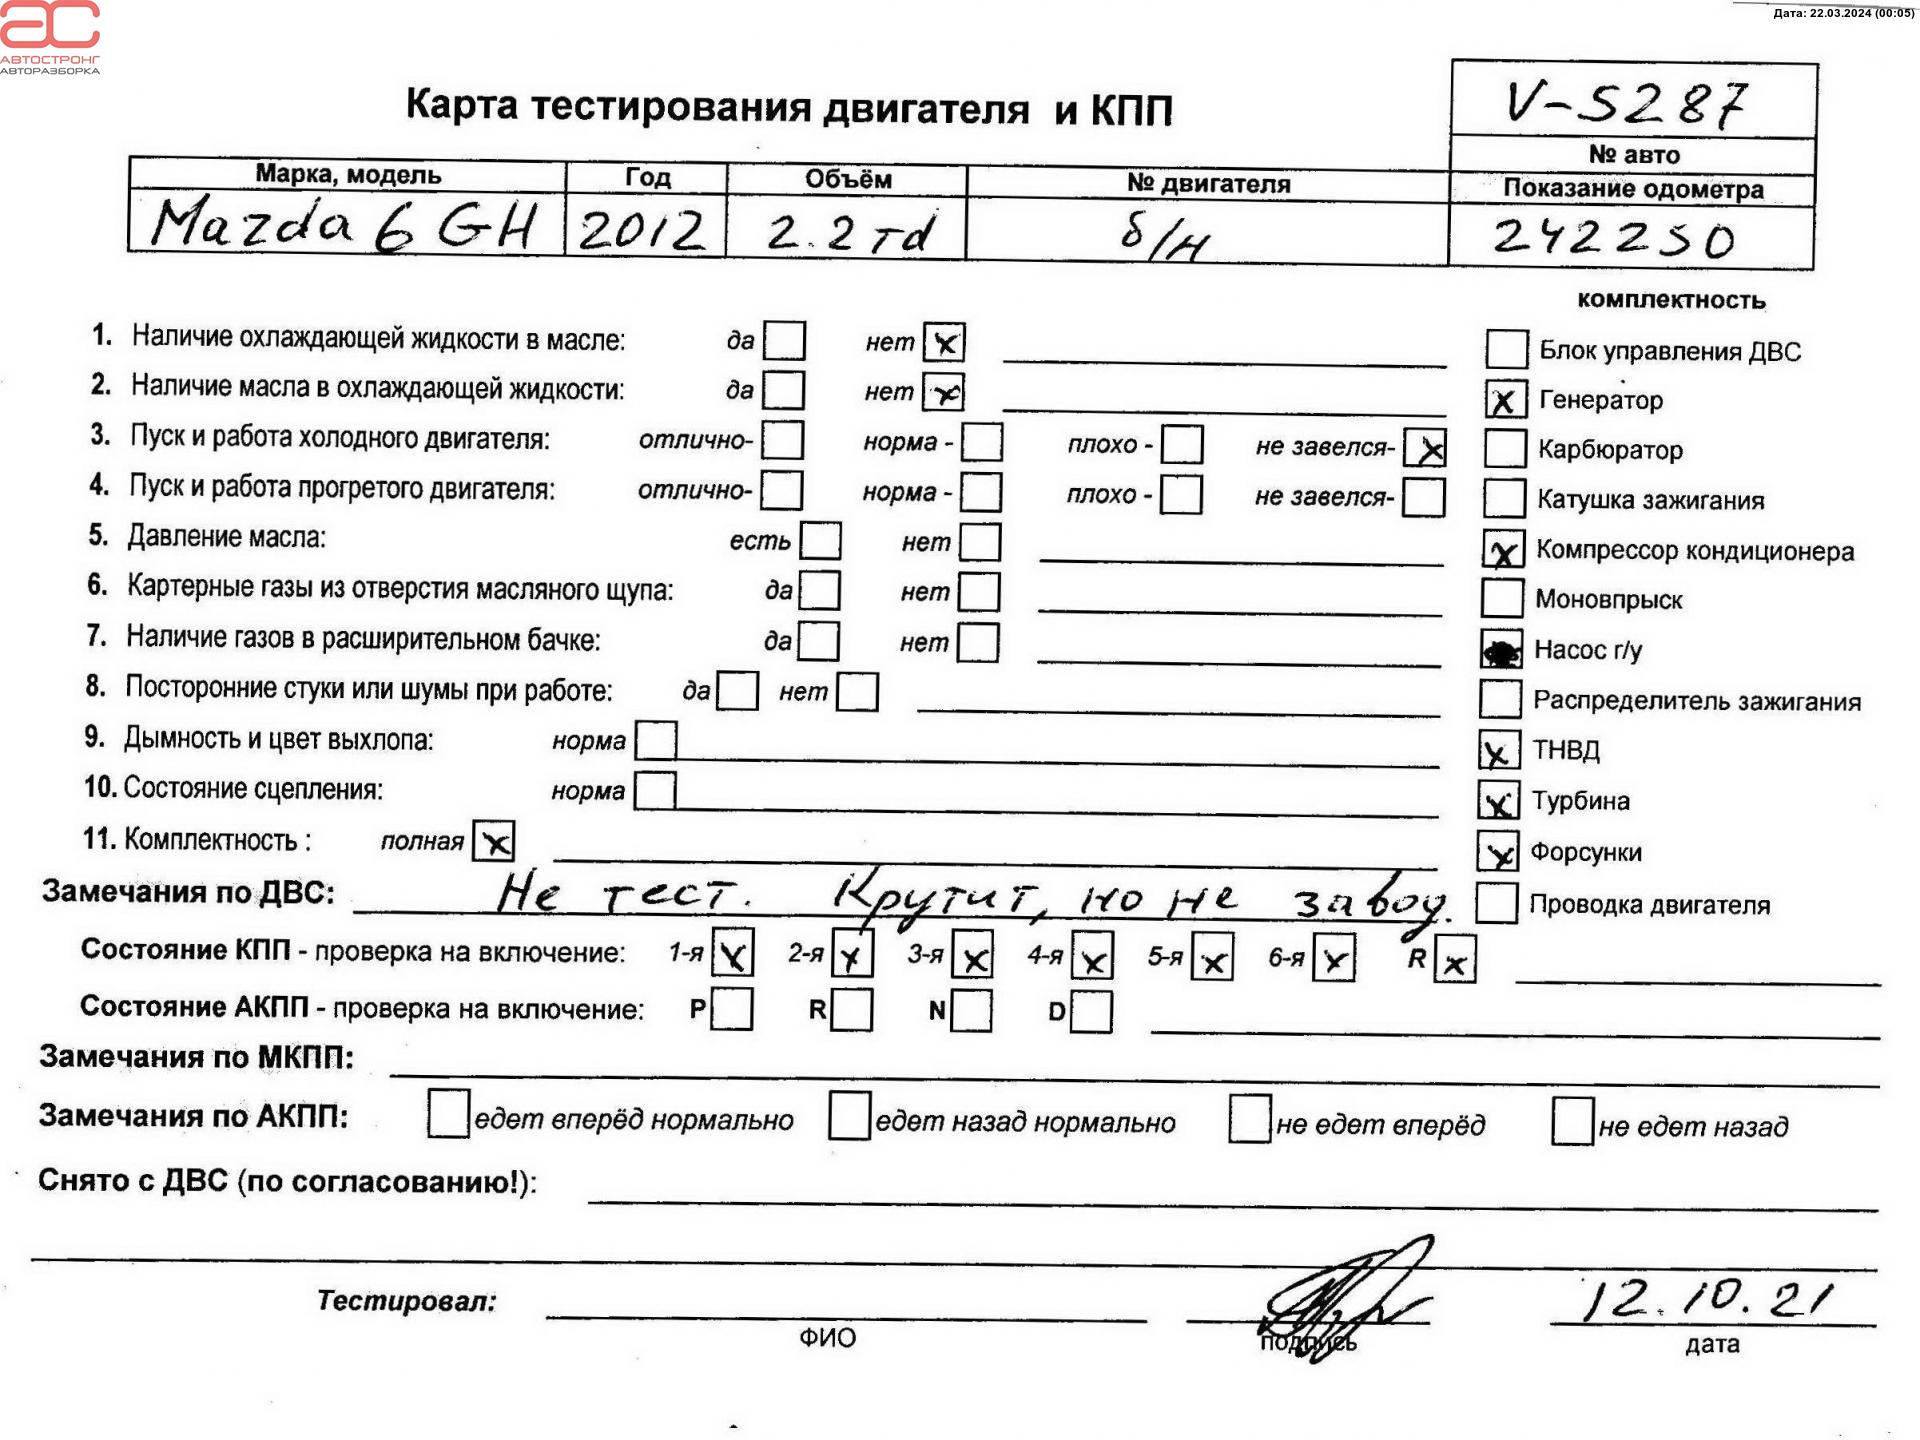 АС
АВТОСТРОНГ
АВТОРАЗБОРКА
Дата: 22.03.2024 (00:05)
Карта тестирования двигателя и КПП
V-5287
№ авто
Марка, модель Год Объём № двигателя Показание одометра
Mazda 6 GH 2012 2.2 td б/н 242250
комплектность
1. Наличие охлаждающей жидкости в масле: да нет x Блок управления ДВС
2. Наличие масла в охлаждающей жидкости: да нет x x Генератор
3. Пуск и работа холодного двигателя: отлично- норма - плохо - не завелся- x Карбюратор
4. Пуск и работа прогретого двигателя: отлично- норма - плохо - не завелся- Катушка зажигания
5. Давление масла: есть нет x Компрессор кондиционера
6. Картерные газы из отверстия масляного щупа: да нет Моновпрыск
7. Наличие газов в расширительном бачке: да нет Насос г/у
8. Посторонние стуки или шумы при работе: да нет Распределитель зажигания
9. Дымность и цвет выхлопа: норма x ТНВД
10. Состояние сцепления: норма x Турбина
11. Комплектность : полная x x Форсунки
Замечания по ДВС: Не тест. Крутит, но не завод. Проводка двигателя
Состояние КПП - проверка на включение: 1-я x 2-я x 3-я x 4-я x 5-я x 6-я x R x
Состояние АКПП - проверка на включение: P R N D
Замечания по МКПП:
Замечания по АКПП: едет вперёд нормально едет назад нормально не едет вперёд не едет назад
Снято с ДВС (по согласованию!):
Тестировал: 12.10.21
ФИО подпись дата